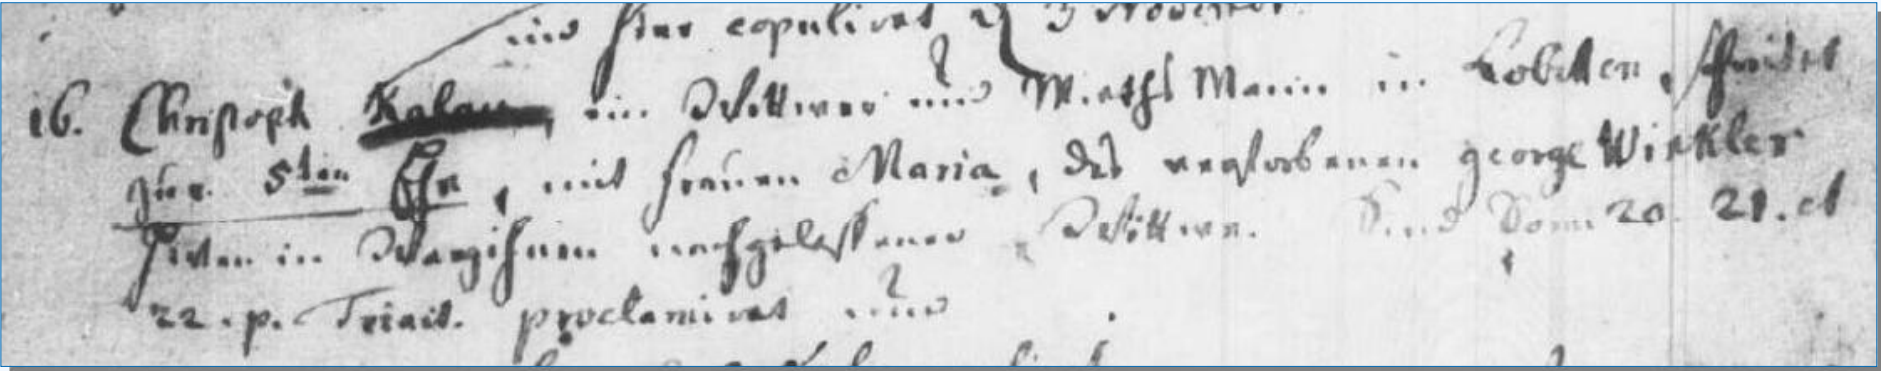 und hier copuliret d 3 November.
16. Christoph Kalau, ein Wittwer und Wirths Mann in Lobitten, schreitet
zur 5ten Ehe, mit Frauen Maria, des verstorbenen george Winkler
in Wargihnen nachgelassener Wittwe. Sind Dom: 20. 21. et
22. p. Trinit. proclamiret und